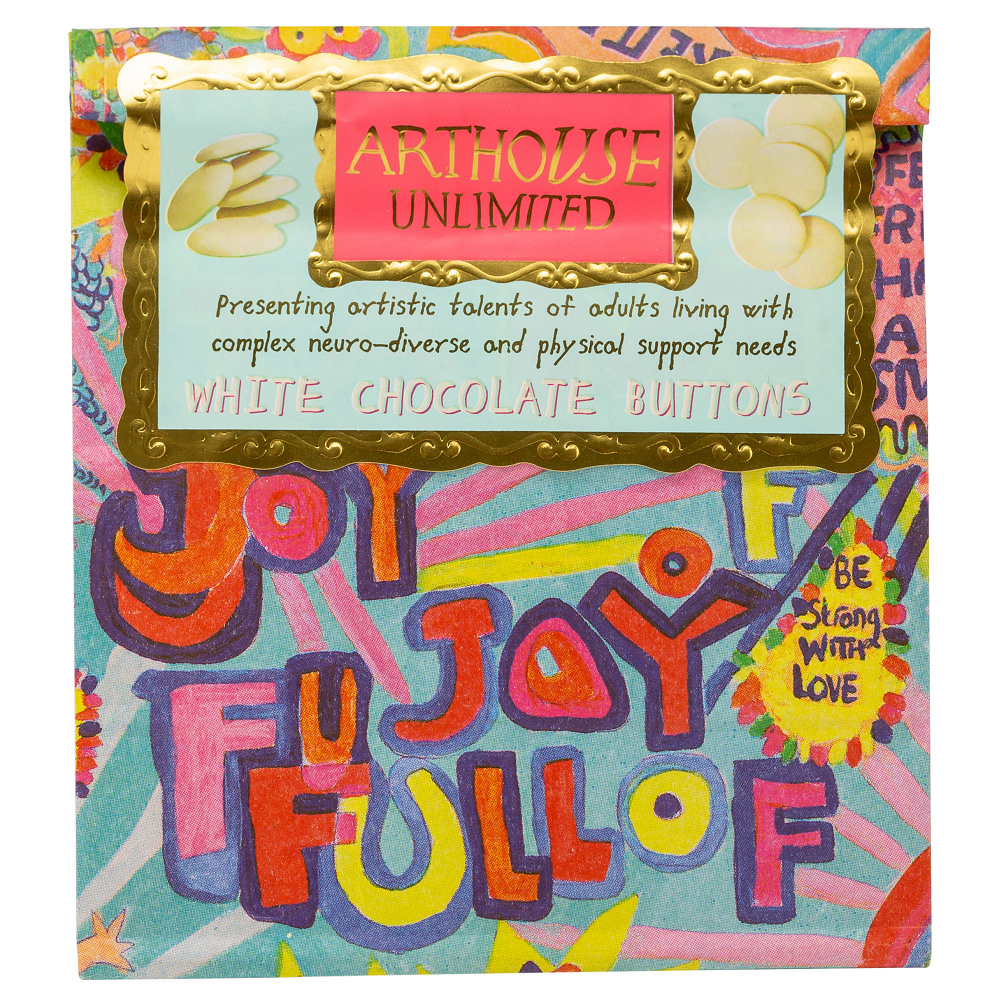 ARTHOUSE
UNLIMITED
Presenting artistic talents of adults living with
complex neuro-diverse and physical support needs
WHITE CHOCOLATE BUTTONS
JOY
F
JOY
BE
Strong
WITH
LOVE
FU
FULL OF